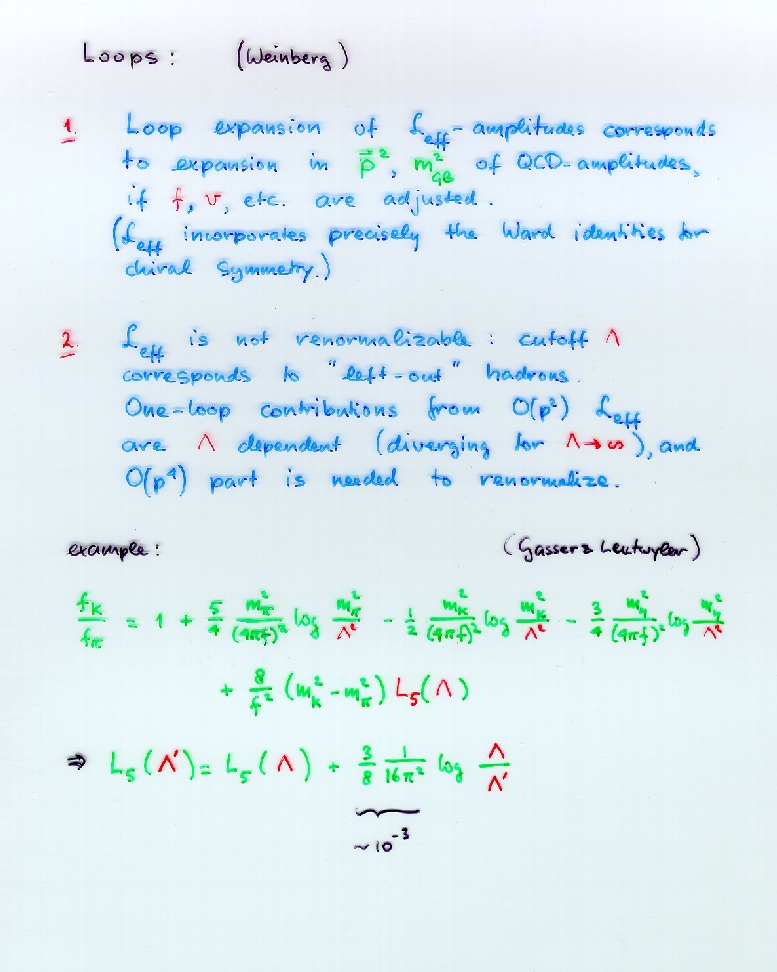 Loops : (Weinberg)
1. Loop expansion of ℒ_eff - amplitudes corresponds
to expansion in p⃗², m²_GB of QCD-amplitudes,
if f, v, etc. are adjusted.
(ℒ_eff incorporates precisely the Ward identities for
chiral symmetry.)
2. ℒ_eff is not renormalizable : cutoff Λ
corresponds to "left-out" hadrons.
One-loop contributions from O(p²) ℒ_eff
are Λ dependent (diverging for Λ → ∞), and
O(p⁴) part is needed to renormalize.
example : (Gasser & Leutwyler)
f_K/f_π = 1 + 5/4 m_π²/(4πf)² log m_π²/Λ² - 1/2 m_K²/(4πf)² log m_K²/Λ² - 3/4 m_η²/(4πf)² log m_η²/Λ²
+ 8/f² (m_K² - m_π²) L₅(Λ)
⇒ L₅(Λ') = L₅(Λ) + 3/8 1/16π² log Λ/Λ'
~ 10⁻³